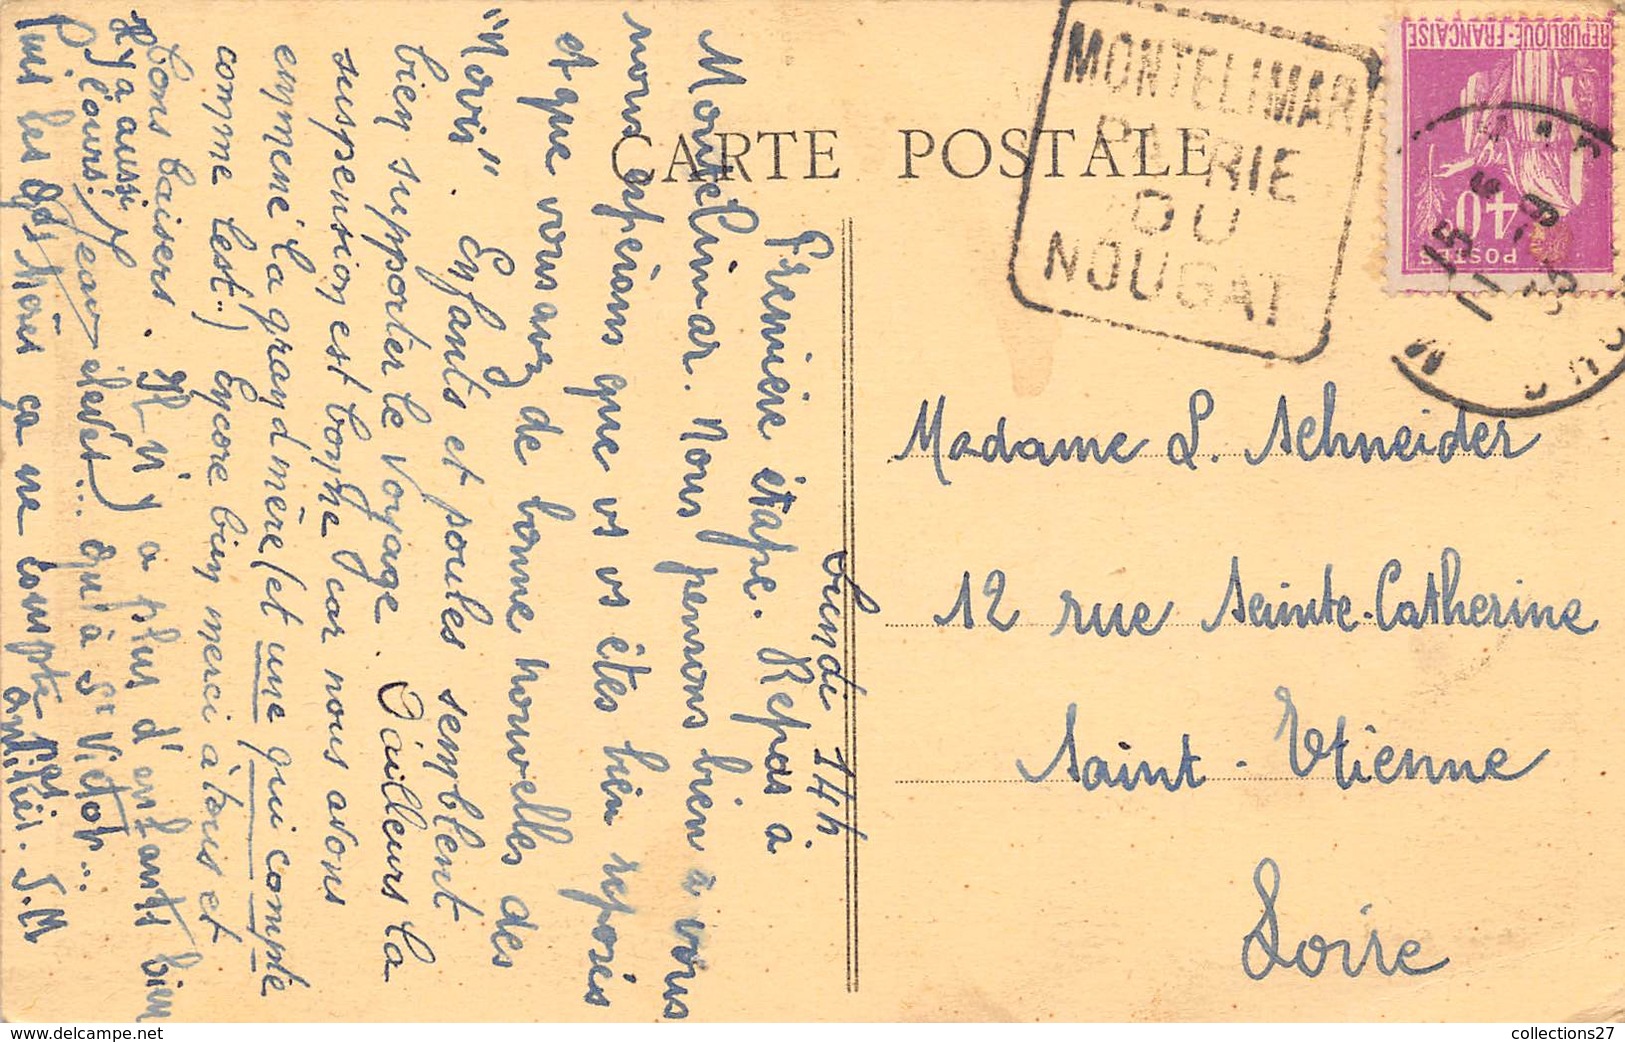 CARTE POSTALE
MONTELIMAR
PATRIE
DU
NOUGAT
REPUBLIQUE-FRANÇAISE
40
POSTES
Lundi 14h
Première étape. Repas à
Montelimar. Nous pensons bien à vous
nous espérons que vs vs êtes bien reposés
et que vous avez de bonne nouvelles des
"Morin". Enfants et poules semblent
bien supporter le voyage. D'ailleurs la
suspension est bonne car nous avons
emmené la grand mère (et une qui compte
comme lest!) Encore bien merci à tous et
bons baisers. Il n'y a plus d'enfants bien
élevés... qu'à St Victor...
Il y a aussi
l'ours! Jean
Puis les gds mères ça ne compte pas
J.M
Madame L. Schneider
12 rue Sainte-Catherine
Saint-Etienne
Loire
collections27